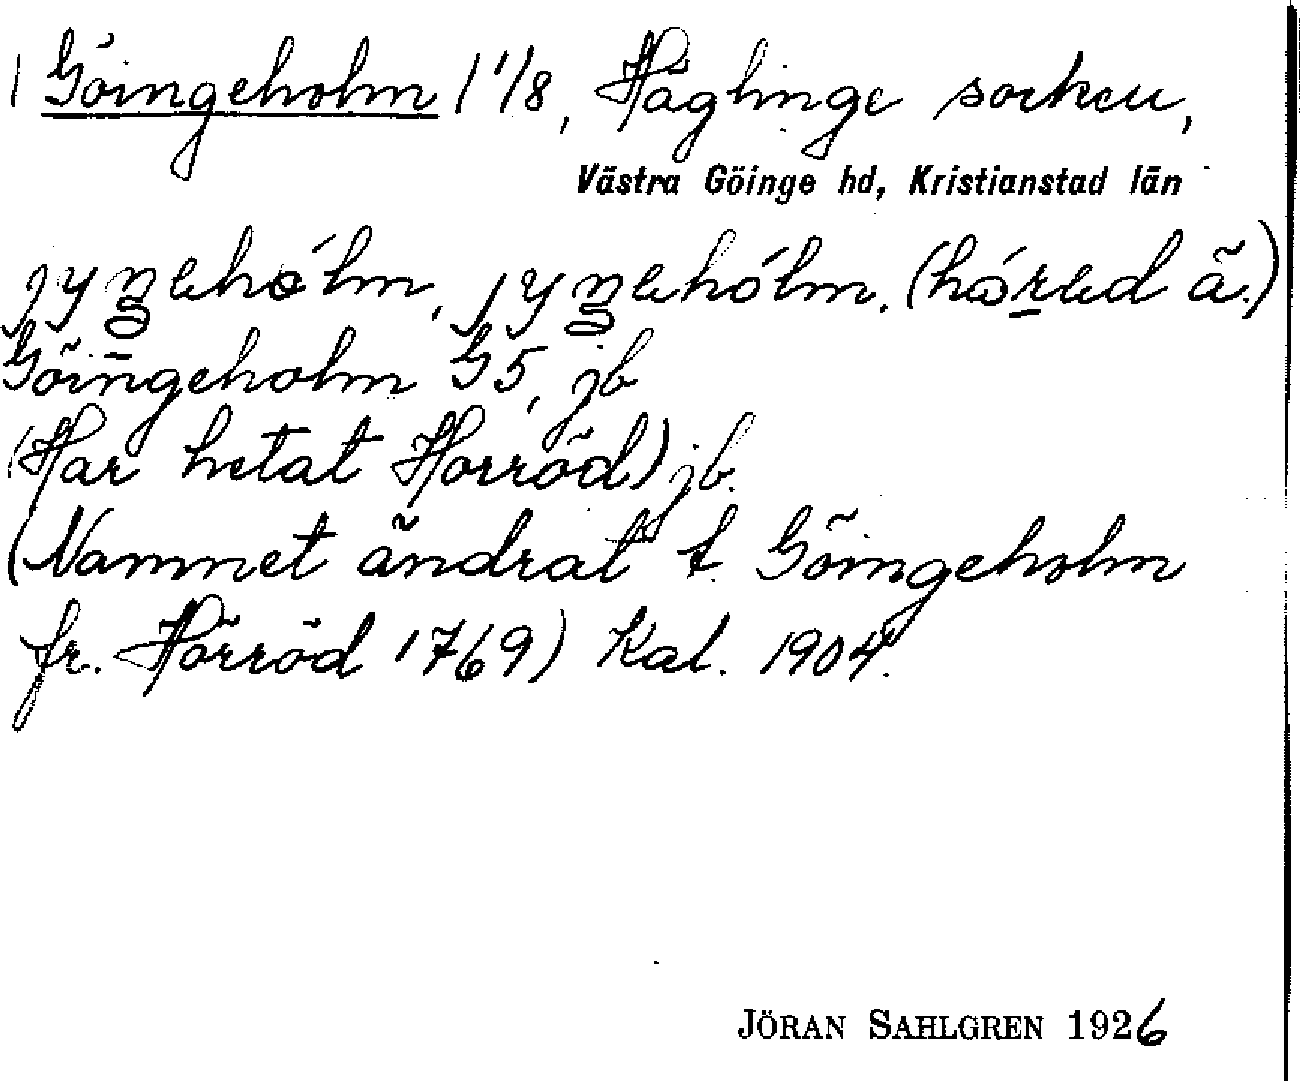 Göingeholm 1 1/8, Häglinge socken,
Västra Göinge hd, Kristianstad län
jyŋəhólm, jyŋəhólm. (hórəd ä.)
Göingeholm G5, jb
(Har hetat Horröd) jb.
(Namnet ändrat t. Göingeholm
fr. Hörröd 1769) Kal. 1904.
JÖRAN SAHLGREN 1926